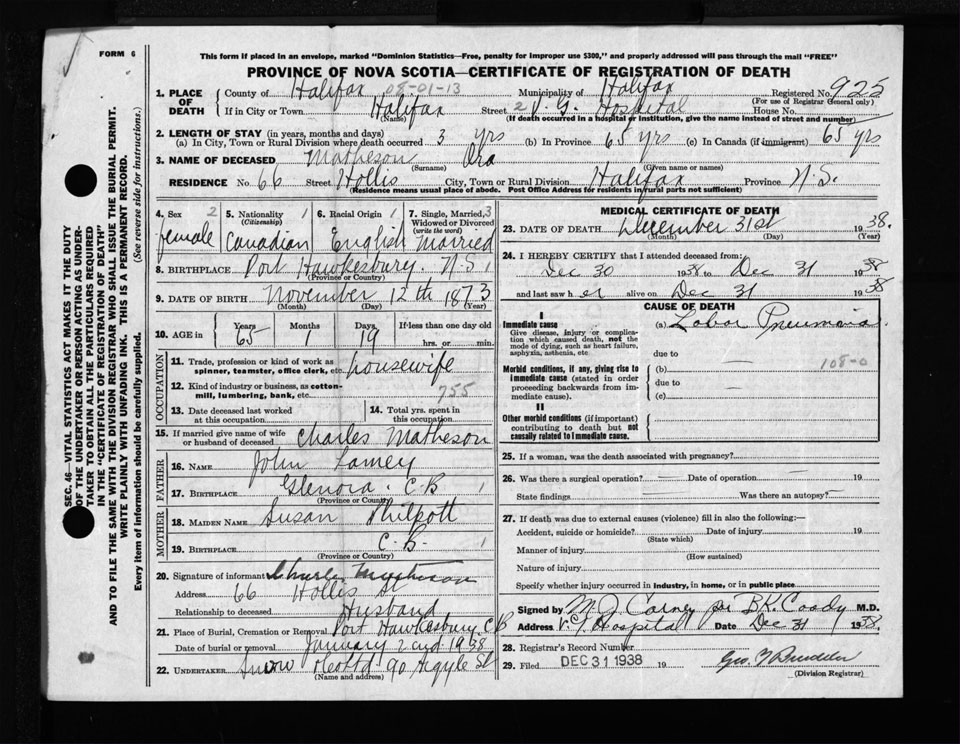 FORM 6
This form if placed in an envelope, marked "Dominion Statistics—Free, penalty for improper use $300," and properly addressed will pass through the mail "FREE"
PROVINCE OF NOVA SCOTIA—CERTIFICATE OF REGISTRATION OF DEATH
SEC. 46—VITAL STATISTICS ACT MAKES IT THE DUTY
OF THE UNDERTAKER OR PERSON ACTING AS UNDER-
TAKER TO OBTAIN ALL THE PARTICULARS REQUIRED
IN THE "CERTIFICATE OF REGISTRATION OF DEATH"
AND TO FILE THE SAME WITH THE DIVISION REGISTRAR WHO SHALL ISSUE THE BURIAL PERMIT.
WRITE PLAINLY WITH UNFADING INK. THIS IS A PERMANENT RECORD.
Every item of information should be carefully supplied. (See reverse side for instructions.)
1. PLACE OF DEATH County of Halifax 08-01-13 Municipality of Halifax Registered No. 925
(For use of Registrar General only)
If in City or Town Halifax Street 2 V. G. Hospital House No.
(Name) (If death occurred in a hospital or institution, give the name instead of street and number)
2. LENGTH OF STAY (in years, months and days)
(a) In City, Town or Rural Division where death occurred 3 yrs (b) In Province 65 yrs (c) In Canada (if immigrant) 65 yrs
3. NAME OF DECEASED Matheson Ora
(Surname) (Given name or names)
RESIDENCE No. 66 Street Hollis City, Town or Rural Division Halifax Province N.S.
(Residence means usual place of abode. Post Office Address for residents in rural parts not sufficient)
4. Sex 2 female
5. Nationality 1 (Citizenship) Canadian
6. Racial Origin 1 English
7. Single, Married, 3 Widowed or Divorced (write the word) Married
8. BIRTHPLACE Port Hawkesbury. N.S. 1
(Province or Country)
9. DATE OF BIRTH November 12th 1873
(Month) (Day) (Year)
10. AGE in Years 65 Months 1 Days 19 If less than one day old hrs. or min.
OCCUPATION
11. Trade, profession or kind of work as spinner, teamster, office clerk, etc. housewife
12. Kind of industry or business, as cotton-mill, lumbering, bank, etc. 755
13. Date deceased last worked at this occupation
14. Total yrs. spent in this occupation
15. If married give name of wife or husband of deceased Charles Matheson
FATHER
16. NAME John Lamey
17. BIRTHPLACE Glenora. C.B 1
(Province or Country)
MOTHER
18. MAIDEN NAME Susan Philpott
19. BIRTHPLACE C.B. 1
(Province or Country)
20. Signature of informant Charles Matheson
Address 66 Hollis St
Relationship to deceased Husband
21. Place of Burial, Cremation or Removal Port Hawkesbury. C.B
Date of burial or removal January 2nd 1938
22. UNDERTAKER Snow Co Ltd 90 Argyle St
(Name and address)
MEDICAL CERTIFICATE OF DEATH
23. DATE OF DEATH December 31st 1938.
(Month) (Day) (Year)
24. I HEREBY CERTIFY that I attended deceased from:
Dec 30 1938 to Dec 31 1938
and last saw her alive on Dec 31 1938
CAUSE OF DEATH
I
Immediate cause
Give disease, injury or complication which caused death, not the mode of dying, such as heart failure, asphyxia, asthenia, etc.
(a) Lobar Pneumonia.
due to —
Morbid conditions, if any, giving rise to immediate cause (stated in order proceeding backwards from immediate cause).
(b) 108-0
due to —
(c)
II
Other morbid conditions (if important) contributing to death but not causally related to immediate cause.
25. If a woman, was the death associated with pregnancy?
26. Was there a surgical operation? — Date of operation — 19
State findings — Was there an autopsy? —
27. If death was due to external causes (violence) fill in also the following:—
Accident, suicide or homicide? Date of injury 19
(State which)
Manner of injury
(How sustained)
Nature of injury
Specify whether injury occurred in industry, in home, or in public place
Signed by M. J. Carney per B.K. Coady M.D.
Address V. G. Hospital Date Dec 31 1938.
28. Registrar's Record Number
29. Filed DEC 31 1938 19
(Division Registrar)